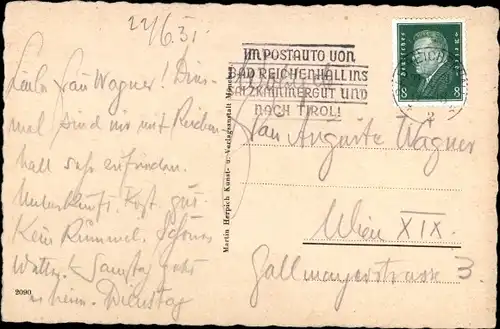 22/6.31.
Liebe Frau Wagner! Dies-
mal sind wir mit Reichen-
hall sehr zufrieden.
Unterkunft. Kost. gut.
Kein Rummel. Schönes
Wetter! Samstag geht
es heim. Dienstag
2090
Martin Herpich Kunst- u. Verlagsanstalt München
IM POSTAUTO VON
BAD REICHENHALL INS
SALZKAMMERGUT UND
NACH TIROL!
Deutsches Reich
8 8
Frau Auguste Wagner
Wien XIX.
Gallmayerstrasse 3.